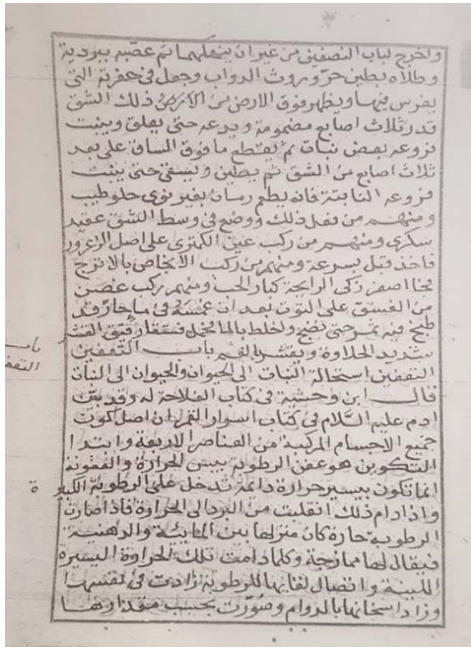 واخرج لباب النصفين من غير ان ينهكهما ثم عصّبه ببردية
وطلاه بطين حرّ وبروث الدواب وجعل فى حفرته التى
يغرس فيها ويظهر فوق الارض من الارض ذلك الشق
قدر ثلاث اصابع مضمومة ويدعه حتى يعلق وينبت
فروعه بعض نبات ثم يقتطع ما فوق الساق على بعد
ثلاث اصابع من الشق ثم يطين ويسقى حتى ينبت
فروعه النابتة فانه يطعم رمان بغير نوى حلو طيب
ومنهم من فعل ذلك ووضع فى وسط الشق عقيد
سكرى ومنهم من ركب عين الكمثرى على اصل الزعرور
فاخذ قبل بسرعة ومنهم من ركب الاجاص بالاترج
اصفر زكى الرايحة كبار الحب ومنهم ركب غصن
من الفستق على التوت بعد ان غمسه فى ماء حار قد
طبخ فيه تمر حتى نضج واختلط بالماء رقيق القشر
شديد الحلاوة ويقشر بالفم باب التعفين
التعفين استحالة النبات الى الحيوان والحيوان الى النبات
قال ابن وحشية فى كتاب الفلاحة له وقد
ادم عليه السّلام فى كتاب اسرار القمر ان اصل كون
جميع الاجسام المركبة من العناصر الاربعة وابتدا
التكوين هو عفن الرطوبة بيبس الحرارة والعفونة
انما تكون بيسير حرارة دائمة تدخل على الرطوبة
واذا دام ذلك انقلبت من البرد الى الحراوة فاذا صارت
الرطوبه حارة كان منزلها بين المائية والدهنية
فيقال لها ممازجة وكلما دامت تلك الحراوة اليسيره
اللينة واتصال لقايها للرطوبة زادت فى
وزاد اسخانها بالدوام وصورت بحسب مقدارها
باب
التعفين